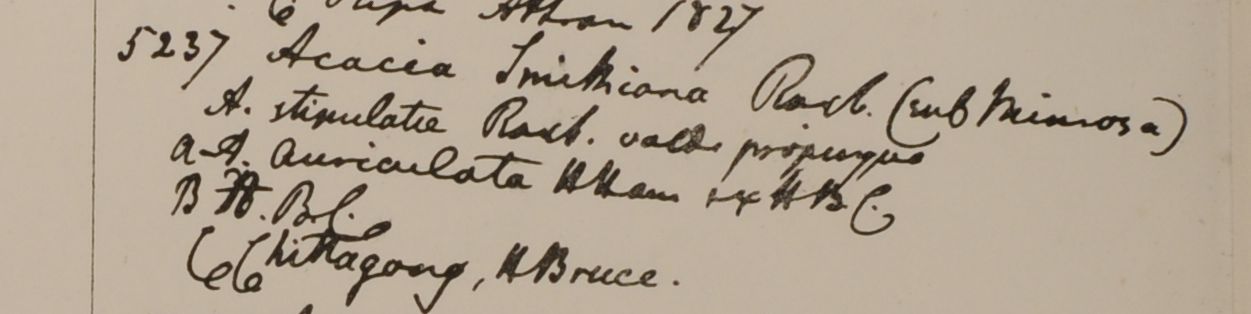 C Napa Attran 1827
5237 Acacia Smithiana Roxb. (sub Mimosa)
A. stipulatæ Roxb. valde propinqua
a A. auriculata HHam ex HBC.
B H.B.C.
C Chittagong, HBruce.